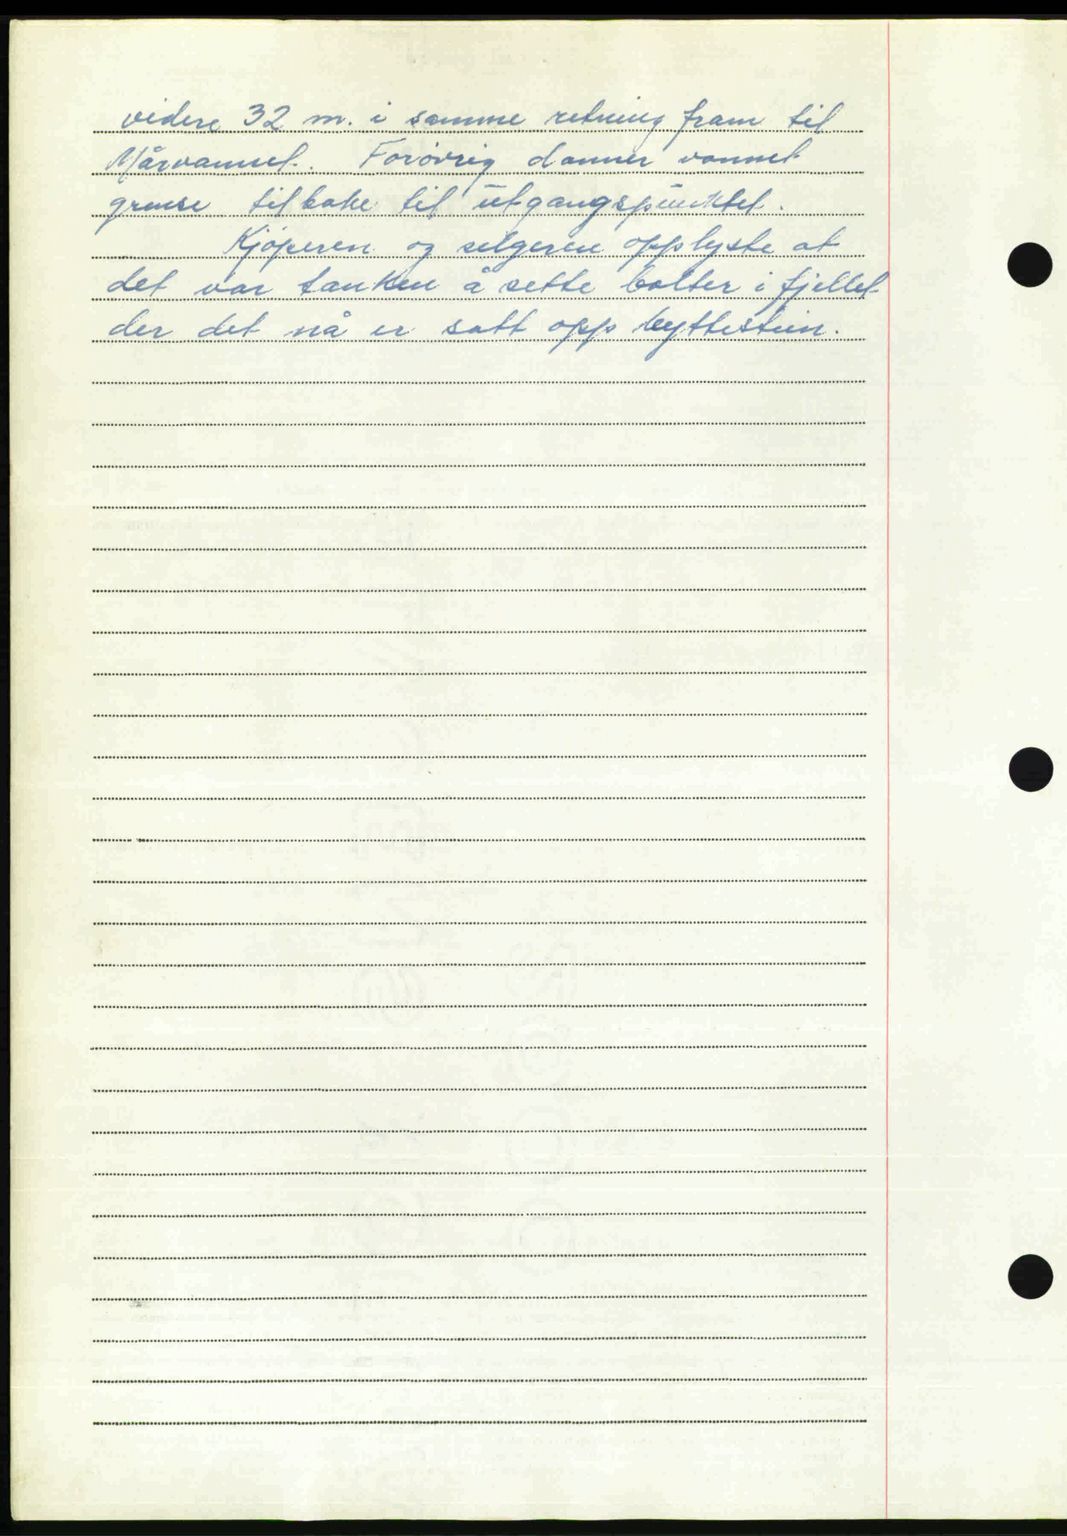 videre 32 m. i samme retning fram til
Mårvannet. Forøvrig danner vannet
grense tilbake til utgangspunktet.
Kjøperen og selgeren opplyste at
det var tanken å sette bolter i fjellet
der det nå er satt opp byttestein.